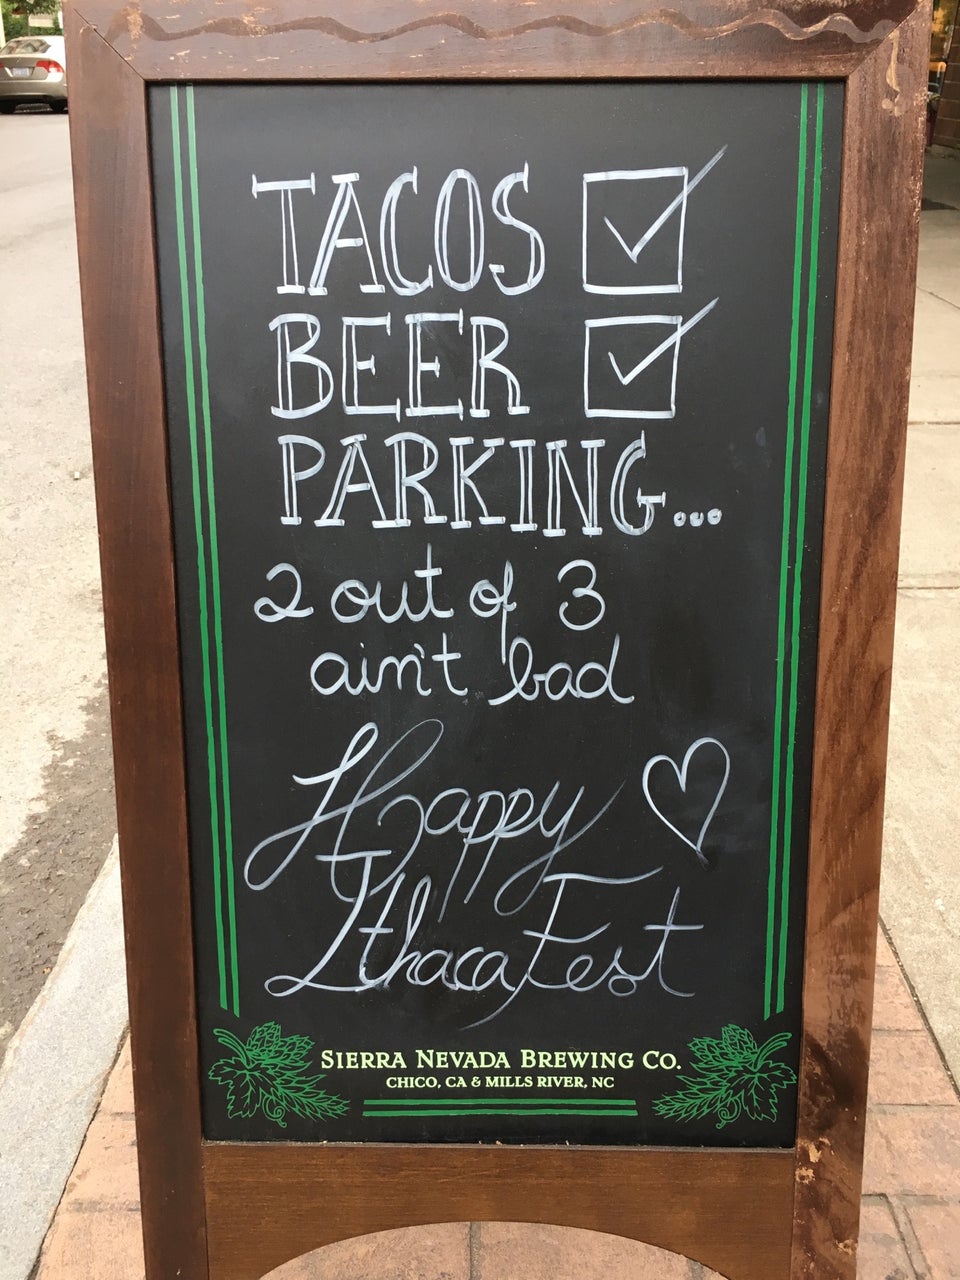 TACOS ☑
BEER ☑
PARKING...
2 out of 3
ain't bad
Happy
Ithaca Fest
SIERRA NEVADA BREWING CO.
CHICO, CA & MILLS RIVER, NC